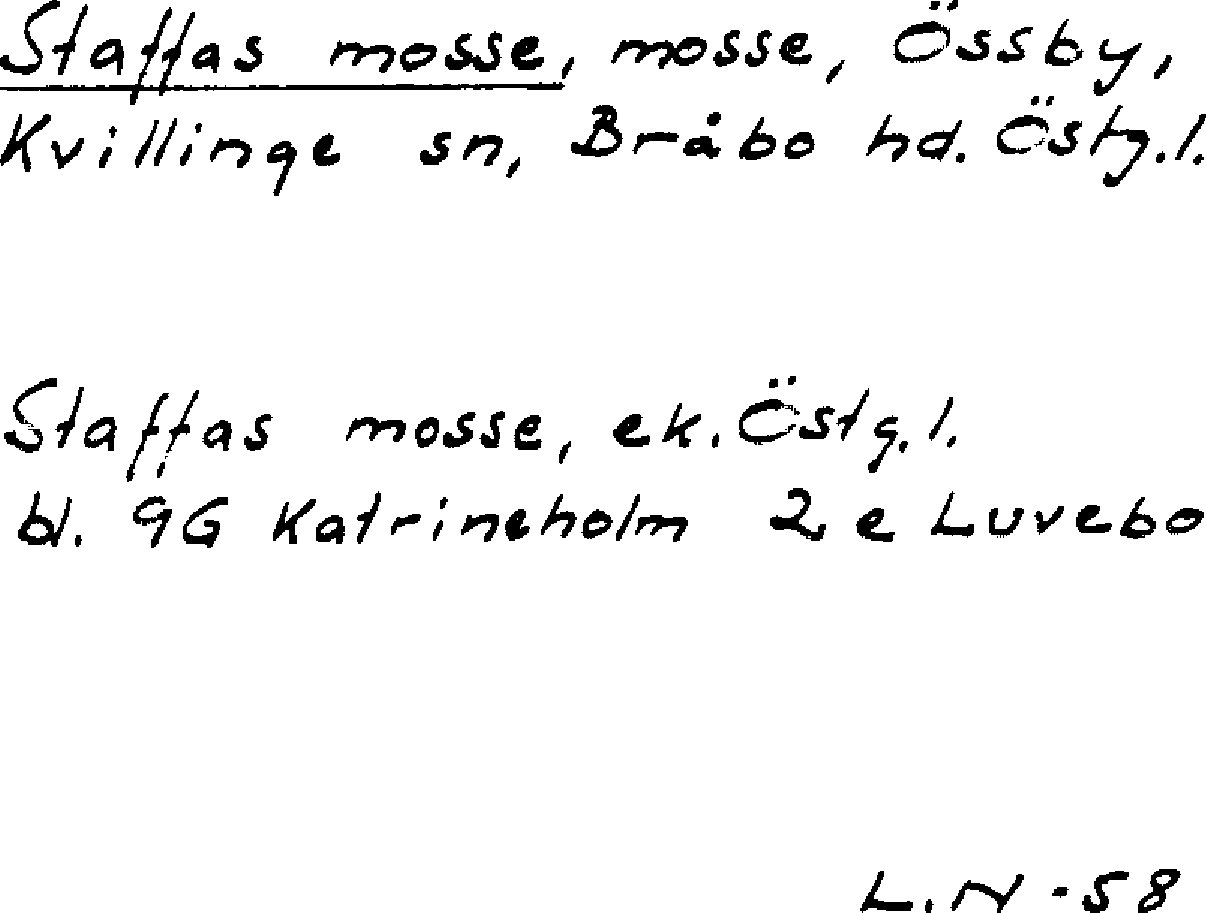 Staffas mosse, mosse, Össby,
Kvillinge sn, Bråbo hd. Östg.l.
Staffas mosse, ek. Östg.l.
bl. 9G Katrineholm 2e Luvebo
L.N -58